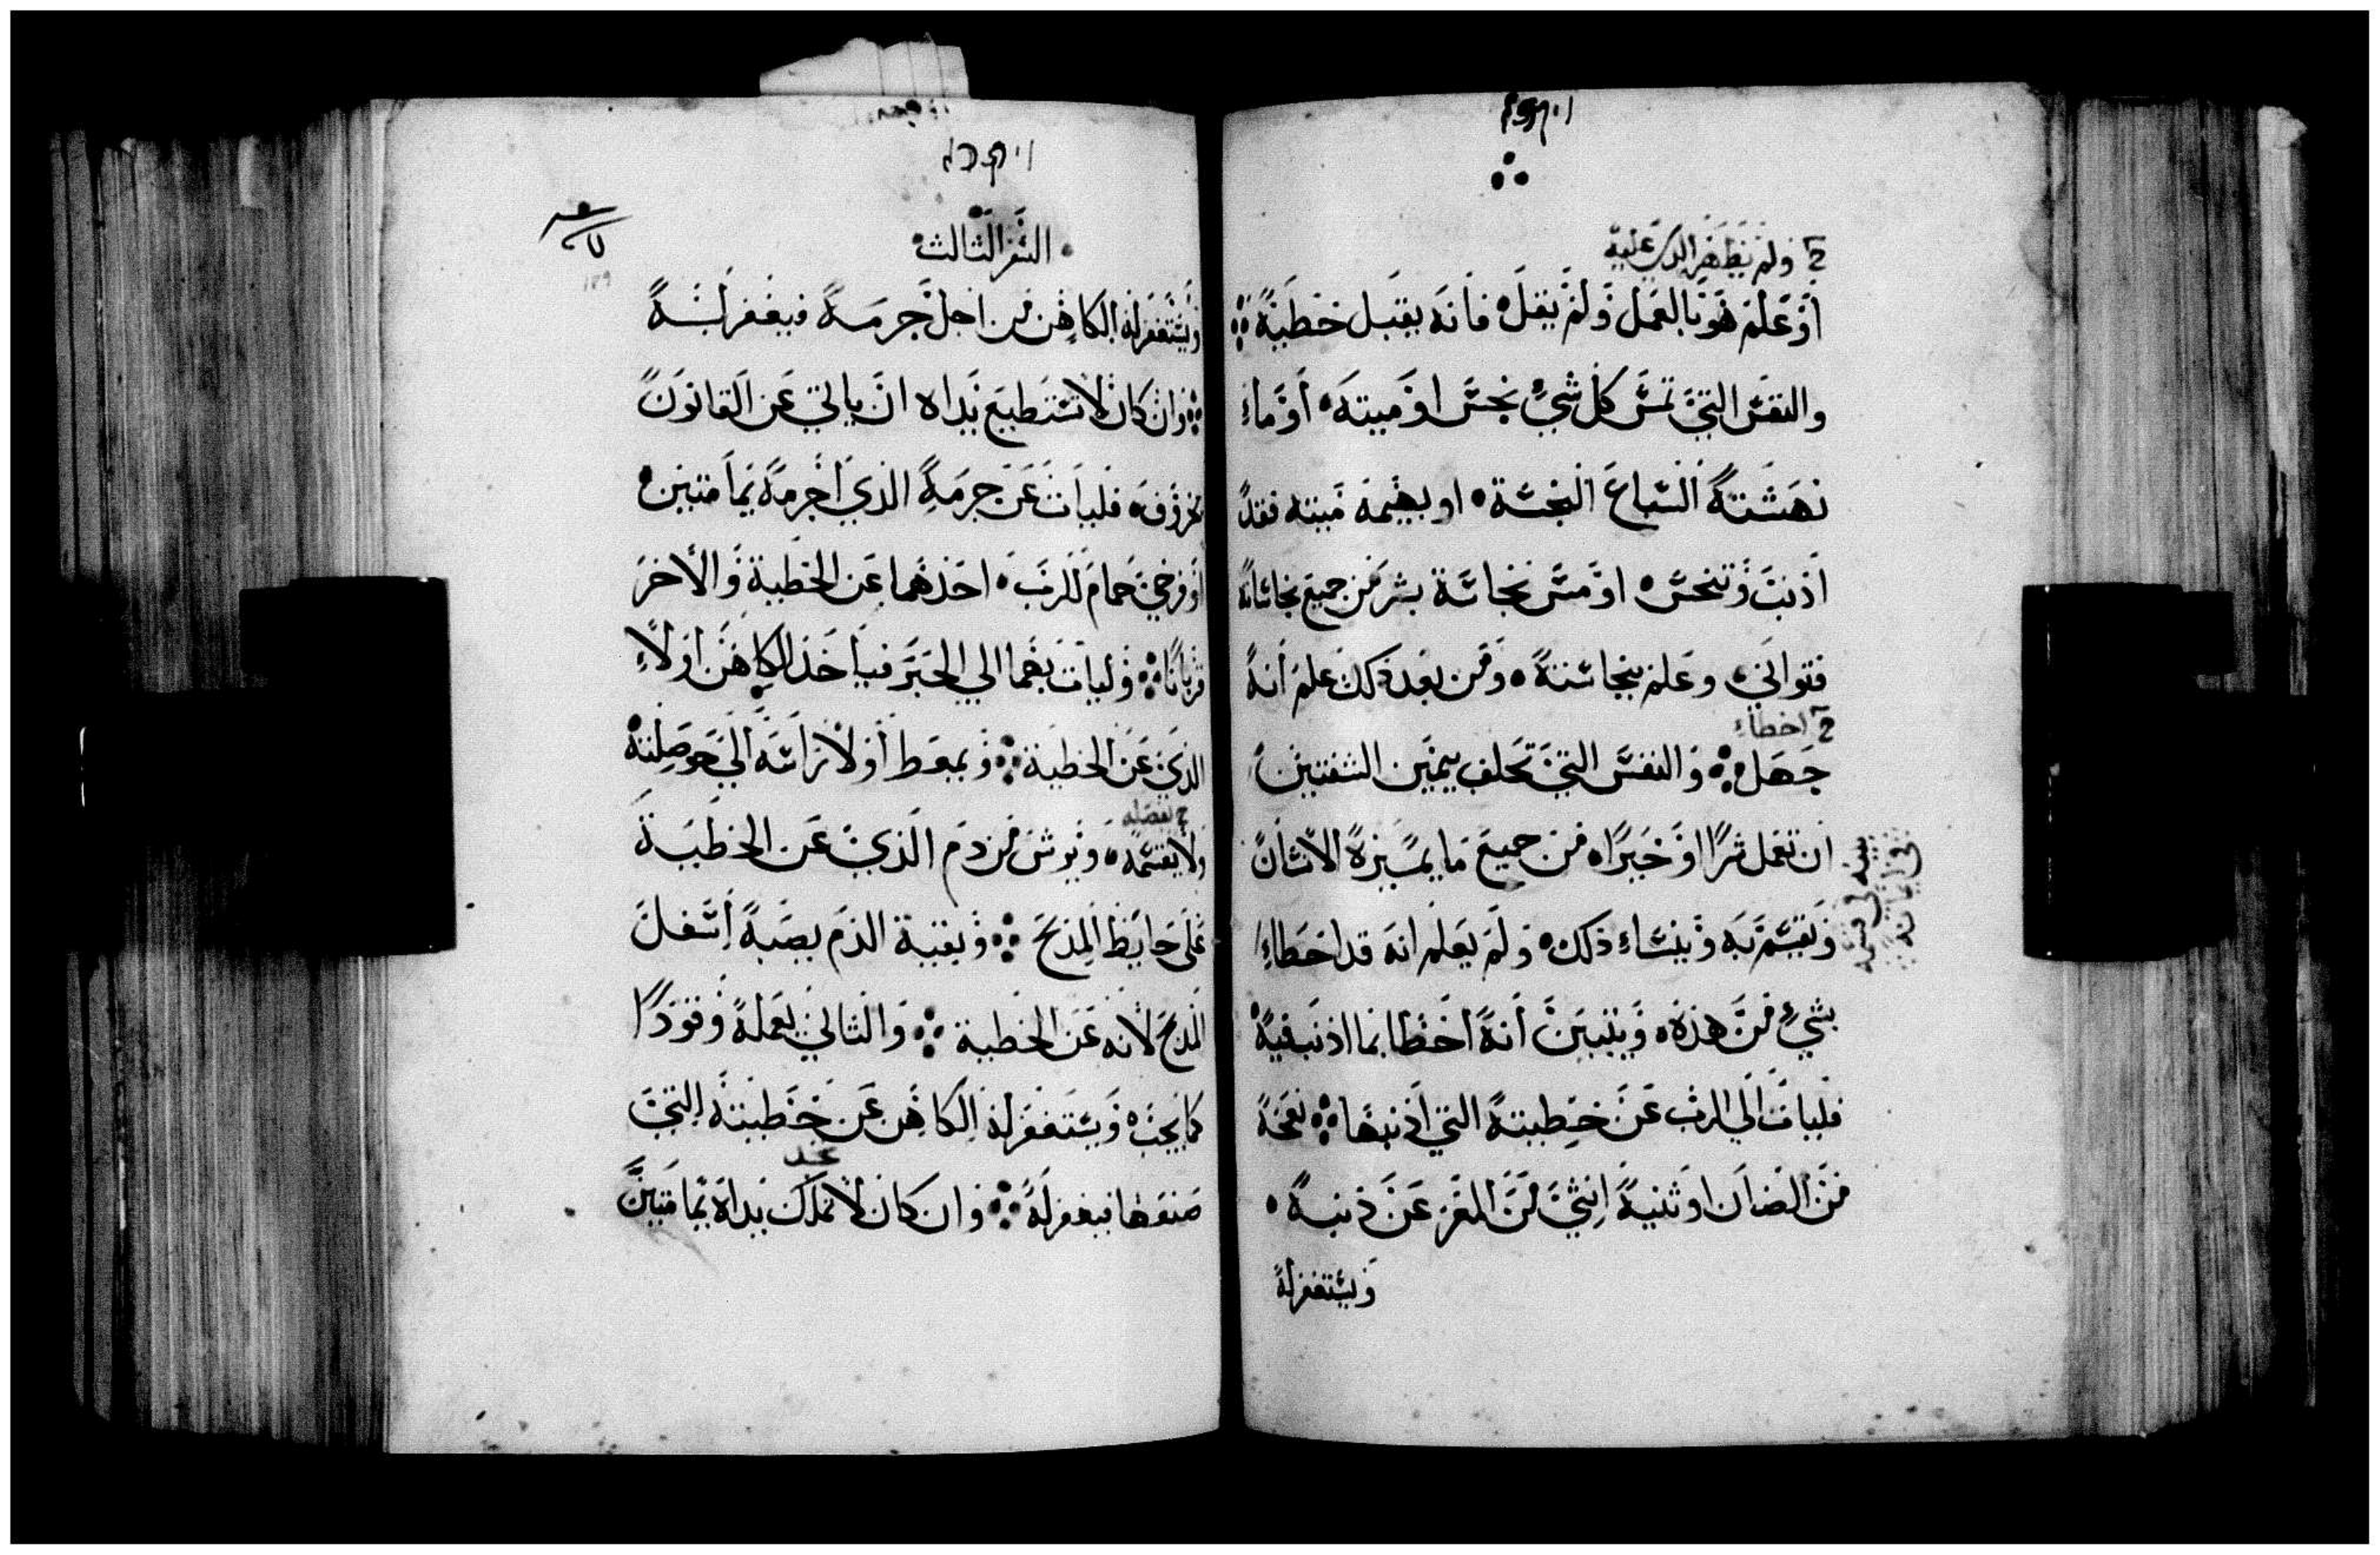 ויקרא
ولم يظهر الذي عليه
أو علم هو بالعمل ولم يقله فانه يقبل خطيته
والنفس التي تمس كل شيء نجس او ميته أو ماء
نهشته السباع النجسة او بهيمه ميته فقد
اذنبت وتنجس او مس نجاسة بشر من جميع نجاساته
فتوانى وعلم بنجاسته ومن بعد ذلك علم أنه
اخطاء
جهل والنفس التي تحلف بيمين الشفتين
ان تعمل شرا او خيرا من جميع ما يميزه الانسان
ويقسم به وينساء ذلك ولم يعلم انه قد اخطاء
بشيء من هذه ويتبين أنه اخطا بما اذنب فيه
فليات الى الرب عن خطيته التي اذنبها نعجه
من الضان او ثنيه انثي من المعز عن ذنبه
ويستغفر له
ויקרא
السفر الثالث
ويستغفر له الكاهن من اجل جرمه فيغفر لنه
وان كان لا تستطيع يداه ان ياتي عن القانون
بخروف فليات عن جرمه الذي اجرمه بيمامتين
او فرخي حمام للرب احدهما عن الخطية والاخر
قربانا وليات بهما الي الحبر فياخذ الكاهن اولاء
الذي عن الخطية ويمعط أولا راسه الي حوصلته
يفصله
ولا يقسمه ويرش من دم الذي عن الخطية
على حايط المذبح وبقية الدم يصبه اسفل
المذبح لانه عن الخطية والثاني يعمله وقودا
كما يجب ويستغفر له الكاهن عن خطيته التي
تجد
صنعها فيغفر له وان كان لا تملك يداه يمامتين